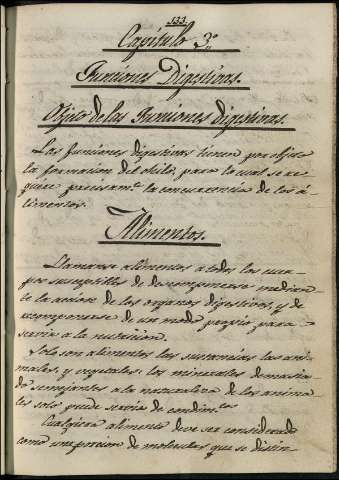 133.
Capitulo 3.º
Funciones Digestivas.
Objeto de las Funciones digestivas.
Las funciones digestivas tienen por objeto
la formacion del chilo, para lo cual se re-
quiere precisam.te la concurrencia de los a-
limentos.
Alimentos.
Llamanse alimentos a todos los cuer-
pos suseptibles de descomponerse median-
te la accion de los organos digestivos, y de
componerse de un modo propio para
servir a la nutricion.
Solo son alimentos las sustancias las ani-
males, y vegetales: los minerales demasia-
do semejantes a la naturaleza de los anima-
les solo puede servir de condim.tos
Cualquiera alimento debe ser considerado
como una porcion de moleculas que se distin-